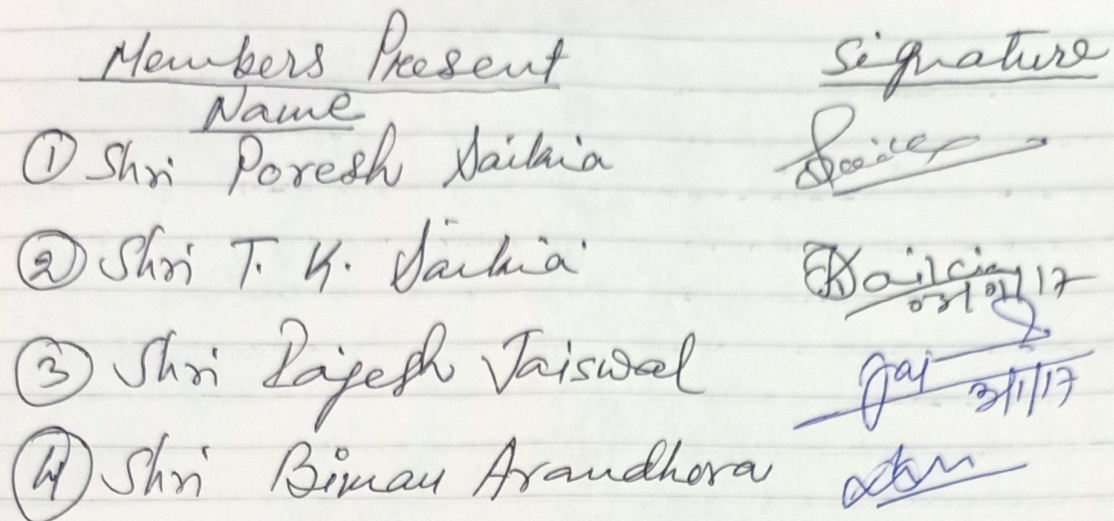 Members Present Signature
Name
① Shri Poresh Saikia
② Shri T. K. Saikia TKSaikia
03/01/17
③ Shri Rajesh Jaiswal Jai
3/1/17
④ Shri Biman Arandhora